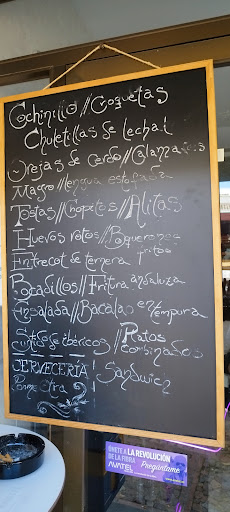 Cochinillo // Croquetas
Chuletillas de lechal
Orejas de Cerdo // Calamares
Magro // lengua estofada
Tostas // Chopitos // Alitas
Huevos rotos // Boquerones fritos
Entrecot de ternera
Bocadillos // Fritura andaluza
Ensalada // Bacalao en tempura
Surtido de ibéricos // Platos combinados
CERVECERIA Sandwich
ÚNETE A LA REVOLUCIÓN
DE LA FIBRA
AVATEL Pregúntame